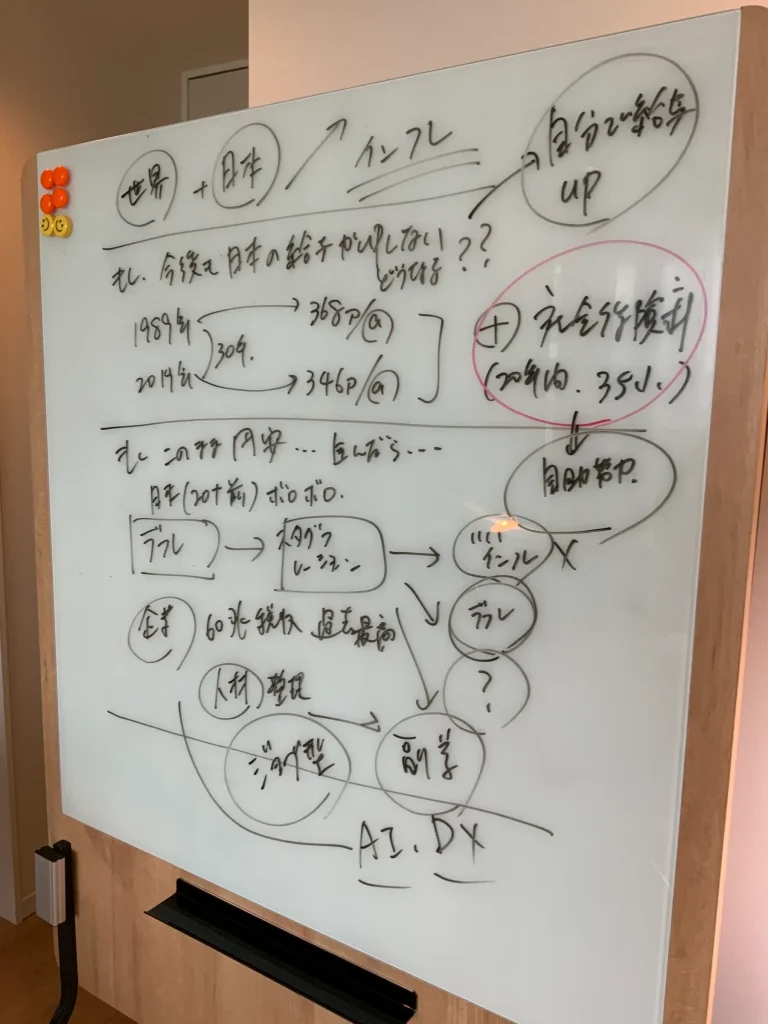 世界 + 日本 インフレ
自分で給与
up
もし、今後も日本の給与がupしない
どうなる ??
1989年 368P/@
30年.
2019年 346P/@
+ 社会保険料
(20年内. 35%.)
もし このまま 円安…進んだら…
日本(20年前)ボロボロ.
自助努力.
デフレ スタグフ
レーション
インフレ X
デフレ
?
企業 60兆 税収 過去最高
人材 整理
ジョブ型 副業
AI、DX